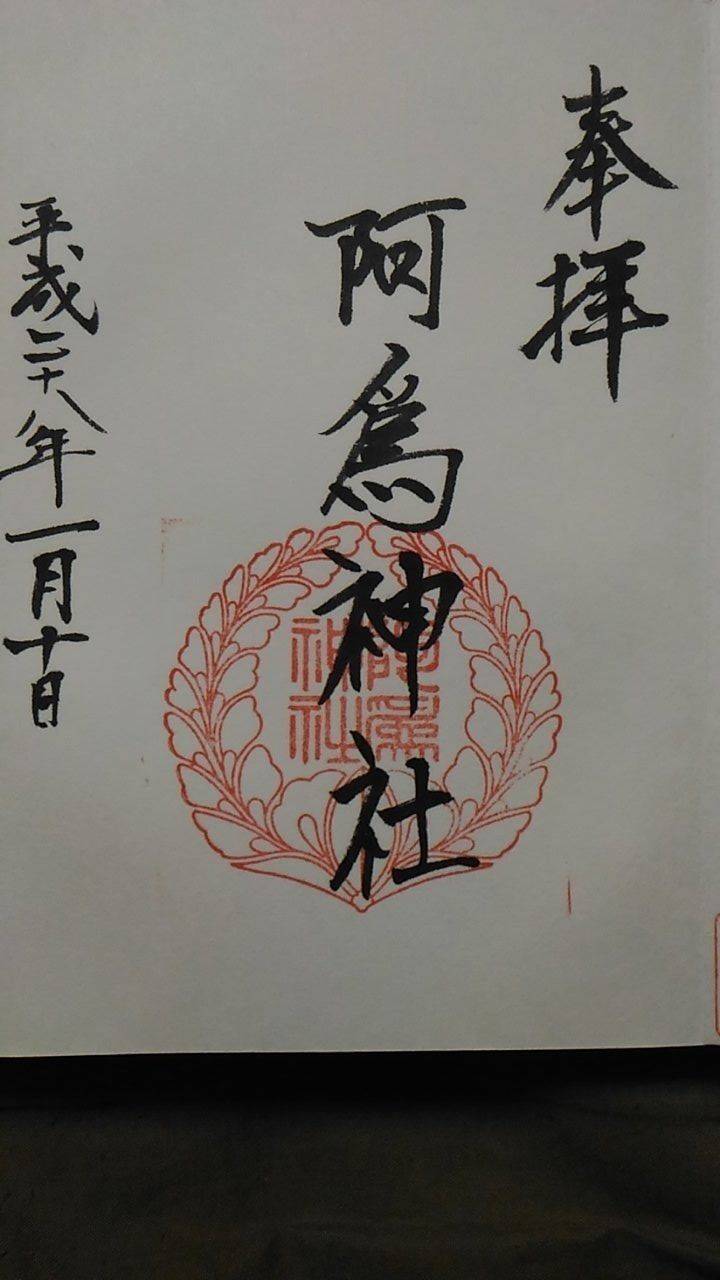 奉拝
阿爲神社
阿爲
神社
平成二十八年一月十日